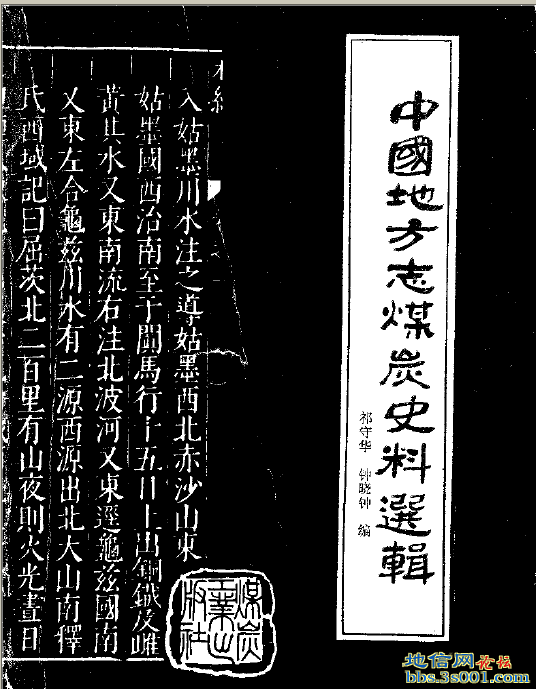 中國地方志煤炭史料選輯
祁守华 钟晓钟 编
入姑墨川水注之導姑墨西北赤沙山東
姑墨國西治南至于闐馬行十五日土出銅鐵及雌
黃其水又東南流右注北波河又東逕龜茲國南
又東左合龜茲川水有二源西源出北大山南釋
氏西域記曰屈茨北二百里有山夜則火光晝日
煤炭
工業出
版社
地信网论坛
bbs.3s001.com